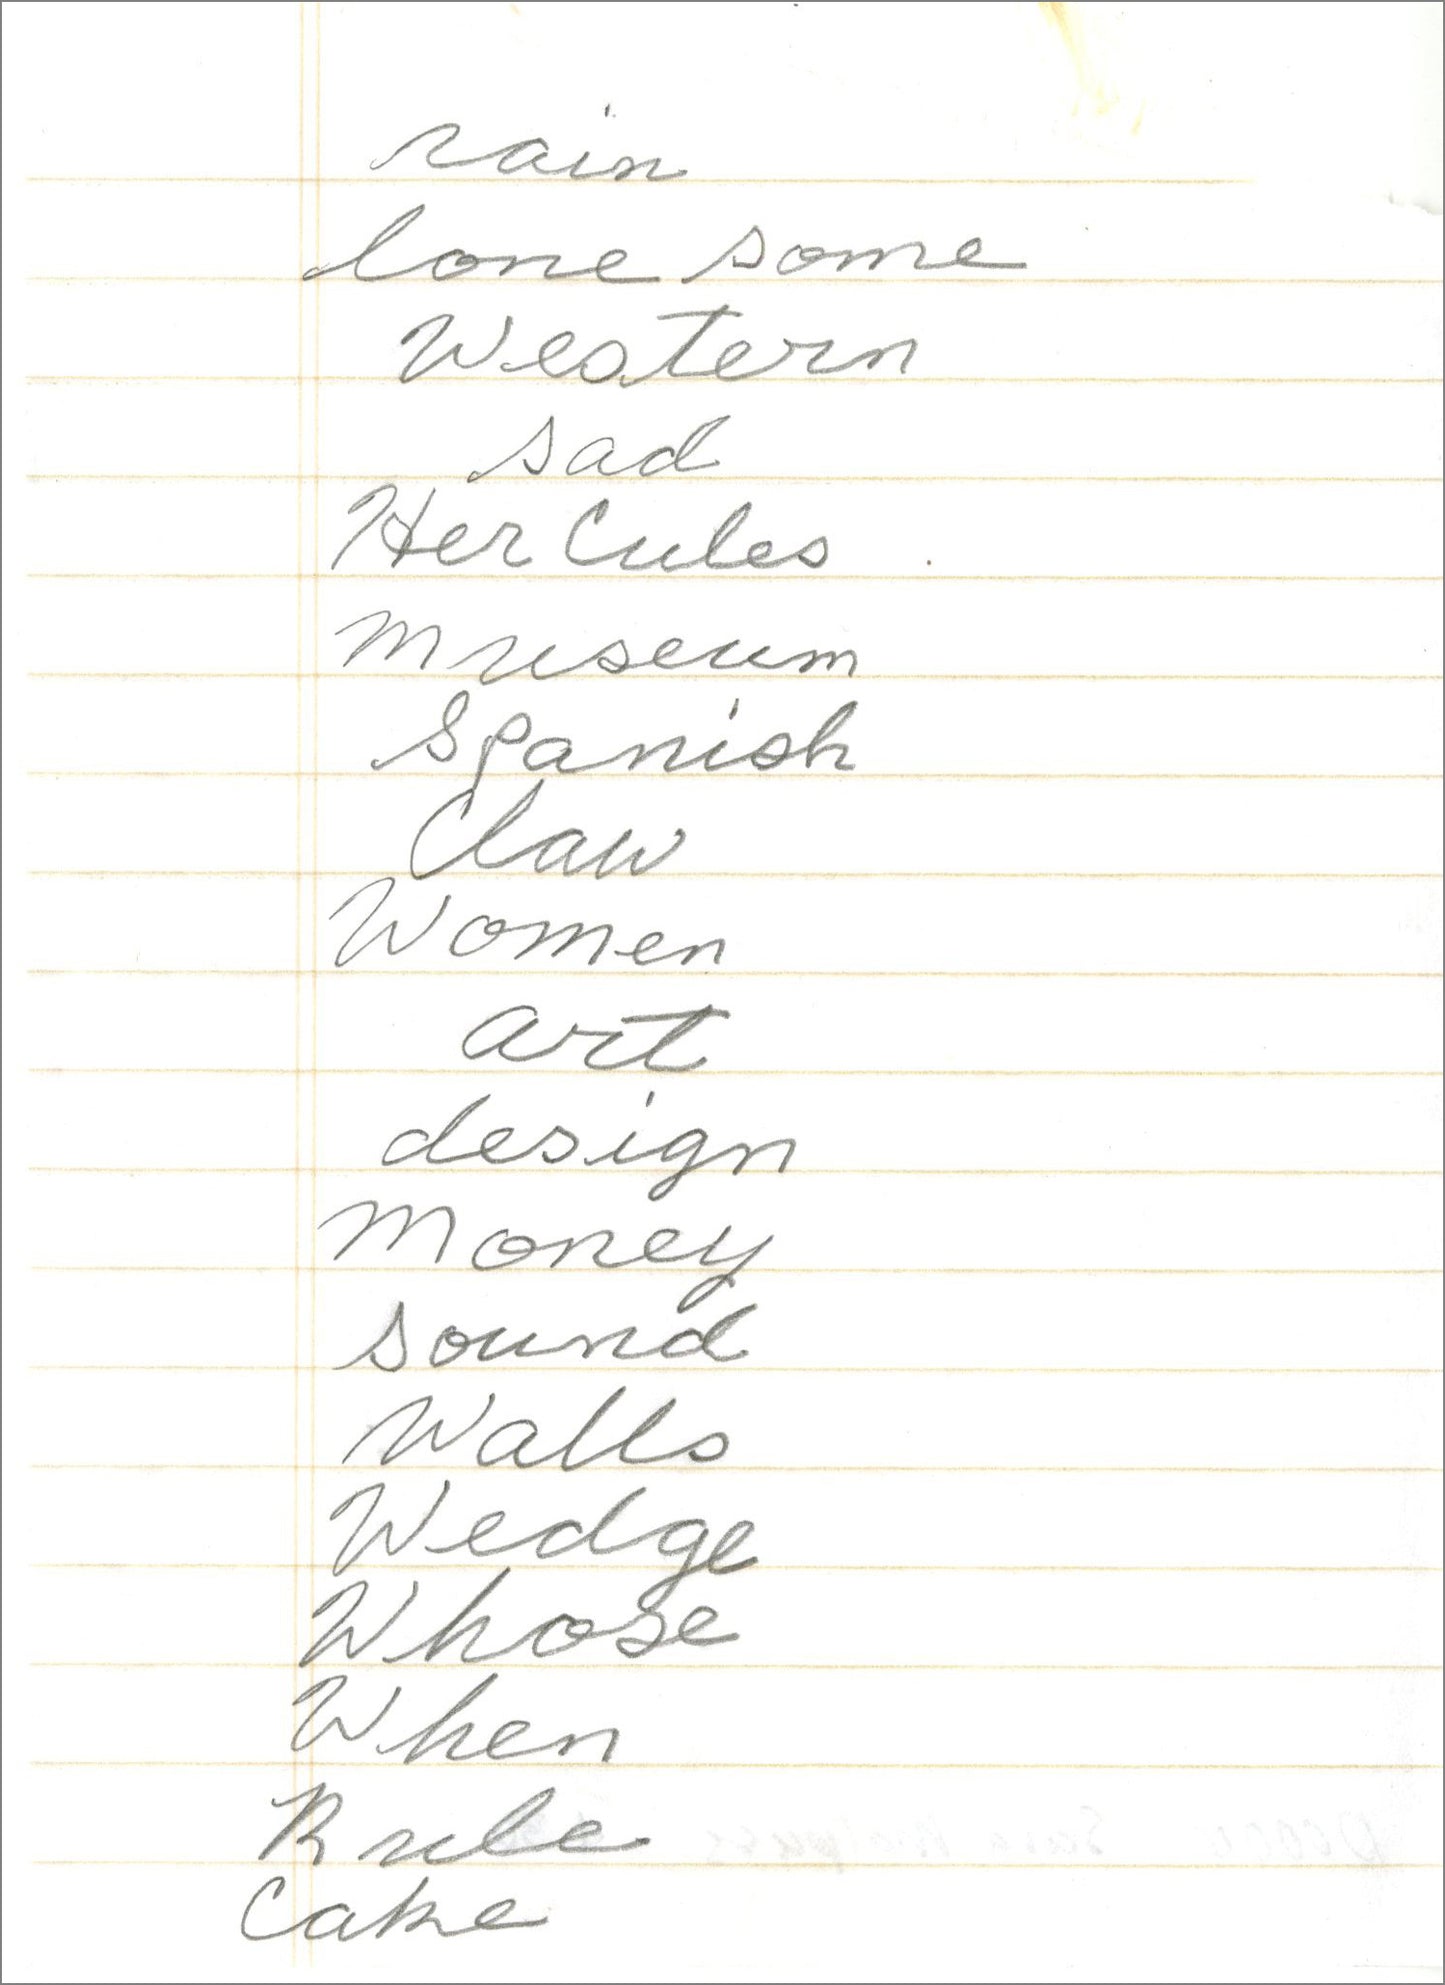 rain
lone some
Western
sad
HerCules
Museum
Spanish
Claw
Women
art
design
Money
sound
Walls
Wedge
Whose
When
Rule
Cake